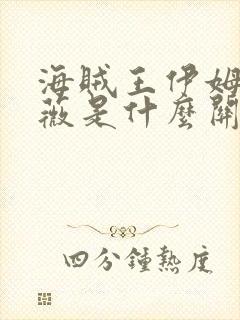 海賊王伊姆
薇是什麼關
四分鐘熱度